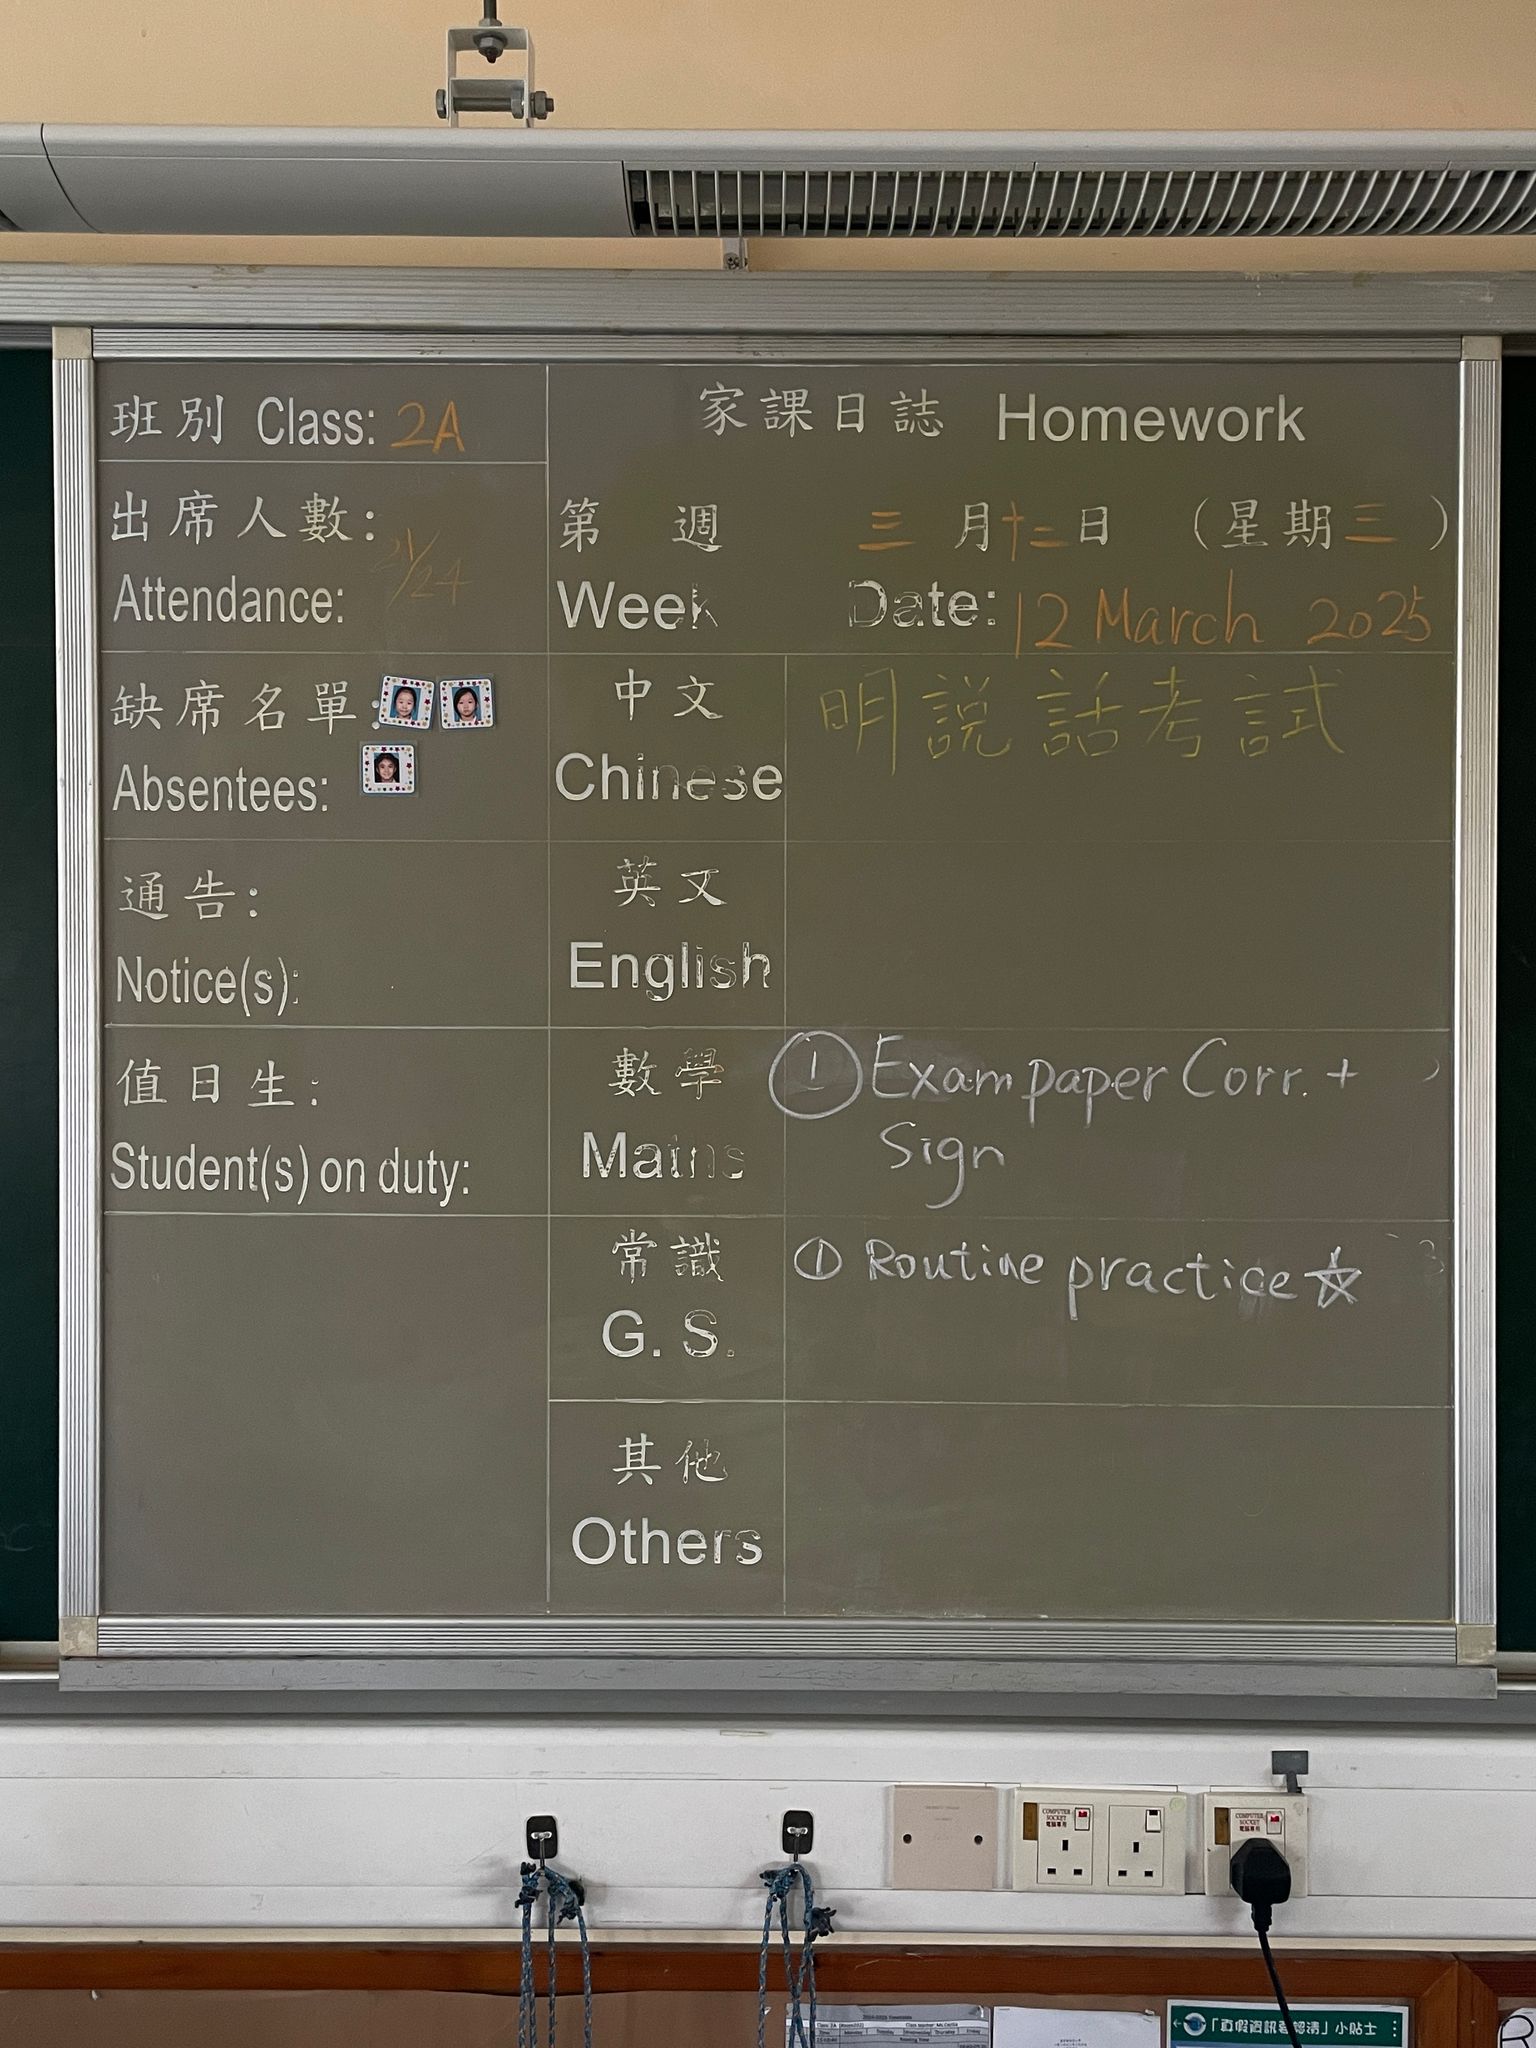 班別 Class: 2A
出席人數:
Attendance: 21/24
缺席名單:
Absentees:
通告:
Notice(s):
值日生:
Student(s) on duty:
家課日誌 Homework
第 週 三月十二日 (星期三)
Week Date: 12 March 2025
中文
Chinese
明説話考試
英文
English
數學
Maths
① Exam paper Corr. +
Sign
常識
G. S.
① Routine practice ☆
其他
Others
COMPUTER
SOCKET
電腦專用
COMPUTER
SOCKET
電腦專用
「真假資訊要認清」小貼士